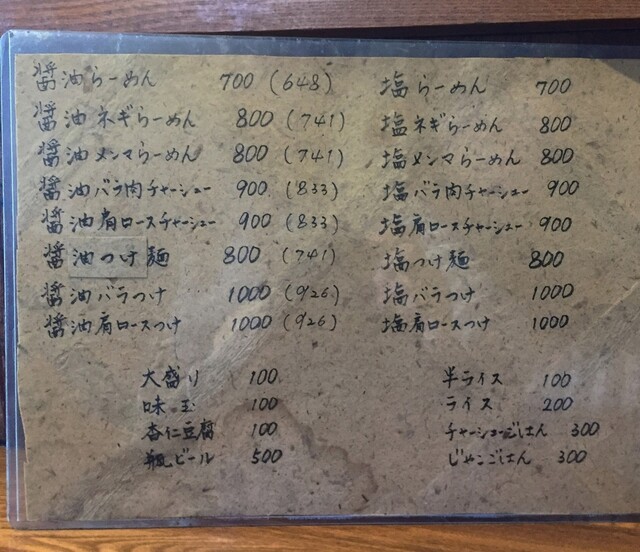 醤油らーめん 700 (648)
醤油ネギらーめん 800 (741)
醤油メンマらーめん 800 (741)
醤油バラ肉チャーシュー 900 (833)
醤油肩ロースチャーシュー 900 (833)
醤油つけ麺 800 (741)
醤油バラつけ 1000 (926)
醤油肩ロースつけ 1000 (926)
大盛り 100
味玉 100
杏仁豆腐 100
瓶ビール 500
塩らーめん 700
塩ネギらーめん 800
塩メンマらーめん 800
塩バラ肉チャーシュー 900
塩肩ロースチャーシュー 900
塩つけ麺 800
塩バラつけ 1000
塩肩ロースつけ 1000
半ライス 100
ライス 200
チャーシューごはん 300
じゃこごはん 300